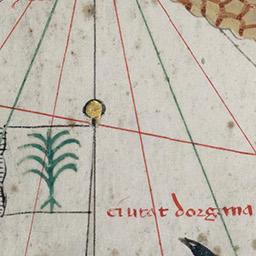 ciutat dorgana